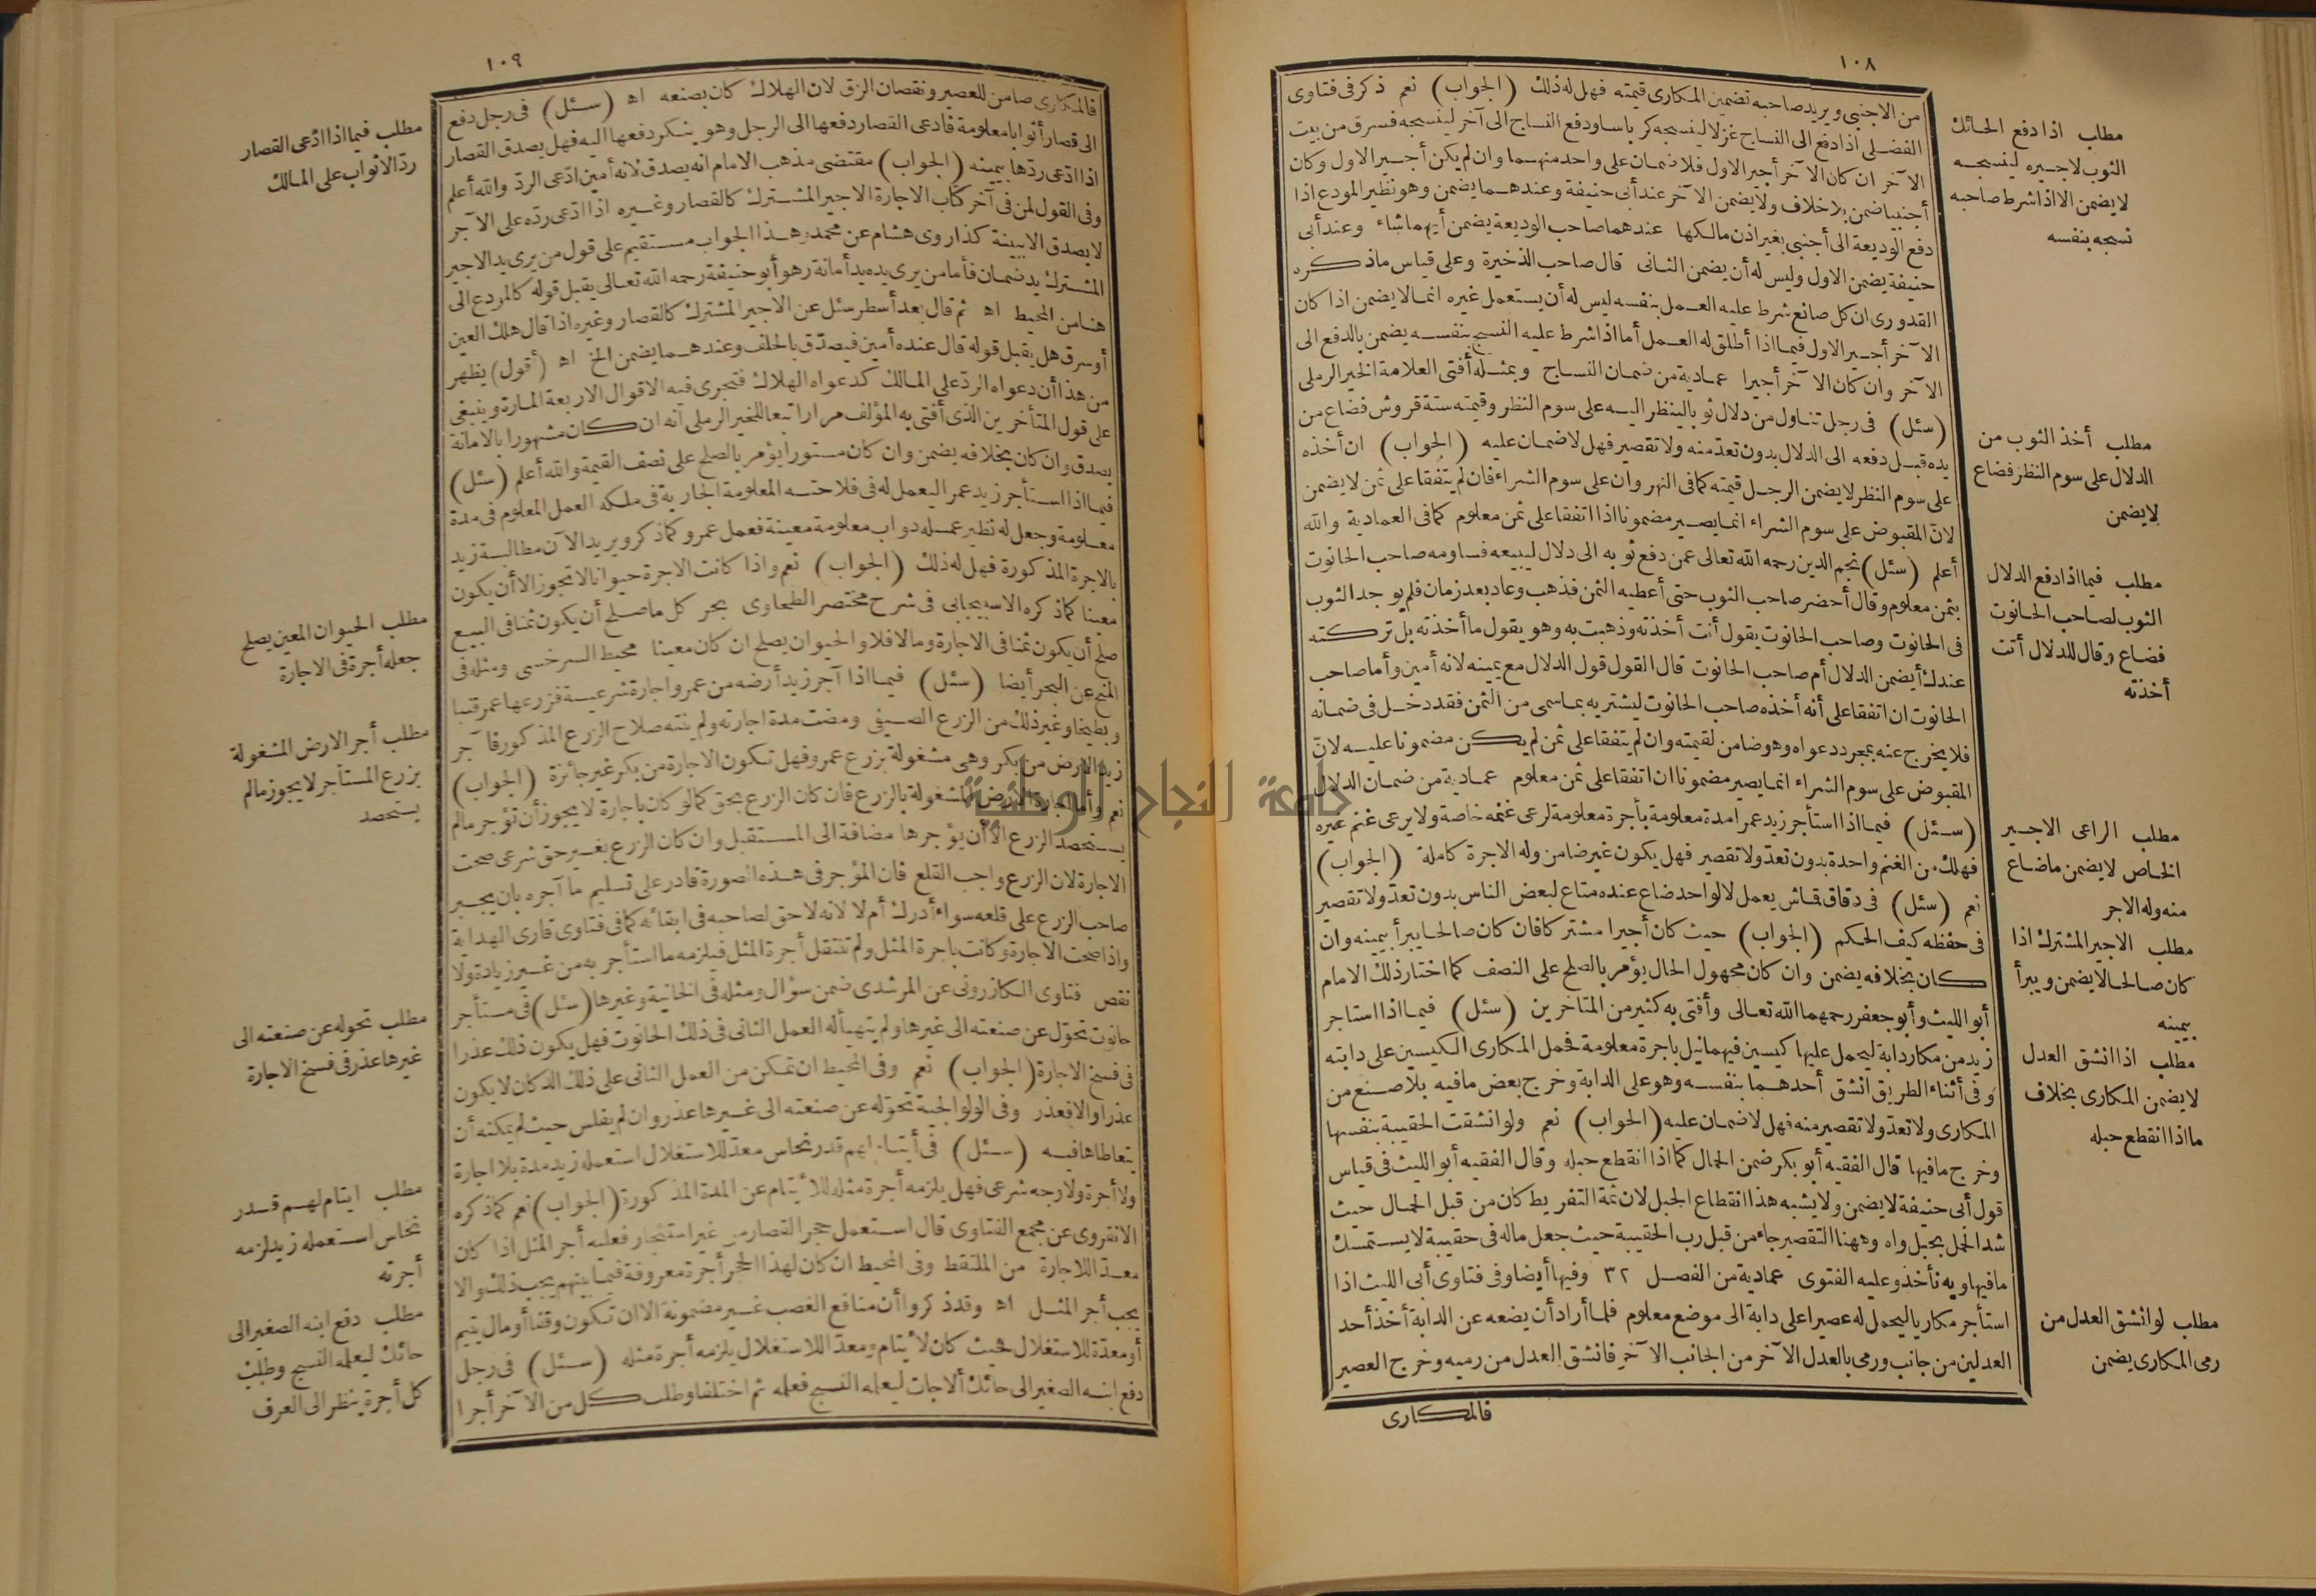 ١٠٨
من الاجنبى ويريد صاحبه تضمين المكارى قيمته فهل له ذلك (الجواب) نعم ذكر فى فتاوى
الفضلى اذا دفع الى النساج غزلا لينسجه كرباسا ودفع النساج الى آخر لينسجه فسرق من بيت
الآخر ان كان الآخر أجير الاول فلا ضمان على واحد منهما وان لم يكن أجير الاول وكان
أجنبيا ضمن بلا خلاف ولا يضمن الآخر عند أبى حنيفة وعندهما يضمن وهو نظير المودع اذا
دفع الوديعة الى أجنبى بغير اذن مالكها عندهما صاحب الوديعة يضمن أيهما شاء وعند أبى
حنيفة يضمن الاول وليس له أن يضمن الثانى قال صاحب الذخيرة وعلى قياس ماذكره
القدورى ان كل صانع شرط عليه العمل بنفسه ليس له أن يستعمل غيره انما لا يضمن اذا كان
الآخر أجير الاول فيما اذا أطلق له العمل أما اذا شرط عليه النسج بنفسه يضمن بالدفع الى
الآخر وان كان الآخر أجيرا عمادية من ضمان النساج وبمثله أفتى العلامة الخير الرملى
(سئل) فى رجل تناول من دلال ثوبا لينظر اليه على سوم النظر وقيمته ستة قروش فضاع من
يده قبل دفعه الى الدلال بدون تعد منه ولا تقصير فهل لا ضمان عليه (الجواب) ان أخذه
على سوم النظر لا يضمن الرجل قيمته كما فى النهر وان على سوم الشراء فان لم يتفقا على ثمن لا يضمن
لان المقبوض على سوم الشراء انما يصير مضمونا اذا اتفقا على ثمن معلوم كما فى العمادية والله
أعلم (سئل) نجم الدين رحمه الله تعالى عمن دفع ثوبه الى دلال ليبيعه فساومه صاحب الحانوت
بثمن معلوم وقال أحضر صاحب الثوب حتى أعطيه الثمن فذهب وعاد بعد زمان فلم يوجد الثوب
فى الحانوت وصاحب الحانوت يقول أنت أخذته وذهبت به وهو يقول ما أخذته بل تركته
عندك أيضمن الدلال أم صاحب الحانوت قال القول قول الدلال مع يمينه لانه أمين وأما صاحب
الحانوت ان اتفقا على أنه أخذه صاحب الحانوت ليشتريه بما سمى من الثمن فقد دخل فى ضمانه
فلا يخرج عنه بمجرد دعواه وهو ضامن لقيمته وان لم يتفقا على ثمن لم يكن مضمونا عليه لان
المقبوض على سوم الشراء انما يصير مضمونا ان اتفقا على ثمن معلوم عمادية من ضمان الدلال
(سئل) فيما اذا استأجر زيد عمرا مدة معلومة بأجرة معلومة لرعى غنمه خاصة ولا يرعى غنم غيره
فهلك من الغنم واحدة بدون تعد ولا تقصير فهل يكون غير ضامن وله الاجرة كاملة (الجواب)
نعم (سئل) فى دقاق قماش يعمل لا لواحد ضاع عنده متاع لبعض الناس بدون تعد ولا تقصير
فى حفظه كيف الحكم (الجواب) حيث كان أجيرا مشتركا فان كان صالحا يبرأ بيمينه وان
كان بخلافه يضمن وان كان مجهول الحال يؤمر بالصلح على النصف كما اختار ذلك الامام
أبو الليث وأبو جعفر رحمهما الله تعالى وأفتى به كثير من المتاخرين (سئل) فيما اذا استاجر
زيد من مكار دابة ليحمل عليها كيسين فيهما نيل باجرة معلومة فحمل المكارى الكيسين على دابته
وفى أثناء الطريق انشق أحدهما بنفسه وهو على الدابة وخرج بعض ما فيه بلا صنع من
المكارى ولا تعد ولا تقصير منه فهل لا ضمان عليه (الجواب) نعم ولو انشقت الحقيبة بنفسها
وخرج ما فيها قال الفقيه أبو بكر ضمن الحمال كما اذا انقطع حبله وقال الفقيه أبو الليث فى قياس
قول أبى حنيفة لا يضمن ولا يشبه هذا انقطاع الحبل لان ثمة التفريط كان من قبل الحمال حيث
شد الحمل بحبل واه وههنا التقصير جاء من قبل رب الحقيبة حيث جعل ماله فى حقيبة لا يستمسك
ما فيها وبه نأخذ وعليه الفتوى عمادية من الفصل ٣٢ وفيها أيضا وفى فتاوى أبى الليث اذا
استأجر مكاريا ليحمل له عصيرا على دابة الى موضع معلوم فلما أراد أن يضعه عن الدابة أخذ أحد
العدلين من جانب ورمى بالعدل الآخر من الجانب الآخر فانشق العدل من رميه وخرج العصير
فالمكارى
مطلب اذا دفع الحائك
الثوب لاجيره لينسجه
لا يضمن الا اذا شرط صاحبه
نسجه بنفسه
مطلب أخذ الثوب من
الدلال على سوم النظر فضاع
لا يضمن
مطلب فيما اذا دفع الدلال
الثوب لصاحب الحانوت
فضاع وقال للدلال أنت
أخذته
مطلب الراعى الاجير
الخاص لا يضمن ما ضاع
منه وله الاجر
مطلب الاجير المشترك اذا
كان صالحا لا يضمن ويبرأ
بيمينه
مطلب اذا انشق العدل
لا يضمن المكارى بخلاف
ما اذا انقطع حبله
مطلب لو انشق العدل من
رمى المكارى يضمن
١٠٩
فالمكارى ضامن للعصير ونقصان الزق لان الهلاك كان بصنعه اه (سئل) فى رجل دفع
الى قصار أثوابا معلومة فادعى القصار دفعها الى الرجل وهو ينكر دفعها اليه فهل يصدق القصار
اذا ادعى ردها بيمينه (الجواب) مقتضى مذهب الامام انه يصدق لانه أمين ادعى الرد والله أعلم
وفى القول لمن فى آخر كتاب الاجارة الاجير المشترك كالقصار وغيره اذا ادعى رده على الآجر
لا يصدق الا ببينة كذا روى هشام عن محمد وهذا الجواب مستقيم على قول من يرى يد الاجير
المشترك يد ضمان فأما من يرى يده يد أمانة وهو أبو حنيفة رحمه الله تعالى يقبل قوله كالمودع الى
هنا من المحيط اه ثم قال بعد أسطر سئل عن الاجير المشترك كالقصار وغيره اذا قال هلك العين
أو سرق هل يقبل قوله قال عنده أمين فيصدق بالحلف وعندهما يضمن الخ اه (أقول) يظهر
من هذا أن دعواه الرد على المالك كدعواه الهلاك فتجرى فيه الاقوال الاربعة المارة وينبغى
على قول المتأخرين الذى أفتى به المؤلف مرارا تبعا للخير الرملى أنه ان كان مشهورا بالامانة
يصدق وان كان بخلافه يضمن وان كان مستورا يؤمر بالصلح على نصف القيمة والله أعلم (سئل)
فيما اذا استأجر زيد عمرا ليعمل له فى فلاحته المعلومة الجارية فى ملكه العمل المعلوم فى مدة
معلومة وجعل له نظير عمله دواب معلومة معينة فعمل عمرو كما ذكر ويريد الآن مطالبة زيد
بالاجرة المذكورة فهل له ذلك (الجواب) نعم واذا كانت الاجرة حيوانا لا تجوز الا أن يكون
معينا كما ذكره الاسبيجابى فى شرح مختصر الطحاوى بحر كل ما صلح أن يكون ثمنا فى البيع
صلح أن يكون ثمنا فى الاجارة وما لا فلا والحيوان يصلح ان كان معينا محيط السرخسى ومثله فى
المنح عن البحر أيضا (سئل) فيما اذا آجر زيد أرضه من عمرو اجارة شرعية فزرعها عمرو قنبا
وبطيخا وغير ذلك من الزرع الصيفى ومضت مدة اجارته ولم ينته صلاح الزرع المذكور فآجر
زيد الارض من بكر وهى مشغولة بزرع عمرو فهل تكون الاجارة من بكر غير جائزة (الجواب)
نعم وأما اجارة الارض المشغولة بالزرع فان كان الزرع بحق كما لو كان باجارة لا يجوز أن تؤجر مالم
يستحصد الزرع الا أن يؤجرها مضافة الى المستقبل وان كان الزرع بغير حق شرعى صحت
الاجارة لان الزرع واجب القلع فان المؤجر فى هذه الصورة قادر على تسليم ما آجره بان يجبر
صاحب الزرع على قلعه سواء أدرك أم لا لانه لا حق لصاحبه فى ابقائه كما فى فتاوى قارى الهداية
واذا صحت الاجارة وكانت باجرة المثل ولم تنتقل أجرة المثل فيلزمه ما استأجر به من غير زيادة ولا
نقص فتاوى الكازرونى عن المرشدى ضمن سؤال ومثله فى الخانية وغيرها (سئل) فى مستأجر
حانوت تحول عن صنعته الى غيرها ولم يتهيأ له العمل الثانى فى ذلك الحانوت فهل يكون ذلك عذرا
فى فسخ الاجارة (الجواب) نعم وفى المحيط ان تمكن من العمل الثانى على ذلك الدكان لا يكون
عذرا والا فعذر وفى الولوالجية تحوله عن صنعته الى غيرها عذر وان لم يفلس حيث لم يمكنه أن
يتعاطاها فيه (سئل) فى أيتام لهم قدر نحاس معد للاستغلال استعمله زيد مدة بلا اجارة
ولا أجرة ولا وجه شرعى فهل يلزمه أجرة مثله للايتام عن المدة المذكورة (الجواب) نعم كما ذكره
الانقروى عن مجمع الفتاوى قال استعمل حجر القصار من غير استئجار فعليه أجر المثل اذا كان
معدا للاجارة من الملتقط وفى المحيط ان كان لهذا الحجر أجرة معروفة فيما بينهم يجب ذلك والا
يجب أجر المثل اه وقد ذكروا أن منافع الغصب غير مضمونة الا ان تكون وقفا أو مال يتيم
أو معدة للاستغلال فحيث كان لايتام ومعدا للاستغلال يلزمه أجرة مثله (سئل) فى رجل
دفع ابنه الصغير الى حائك ألاجات ليعلمه النسج فعلمه ثم اختلفا وطلب كل من الآخر أجرا
مطلب فيما اذا ادعى القصار
رد الاثواب على المالك
مطلب الحيوان المعين يصلح
جعله أجرة فى الاجارة
مطلب أجر الارض المشغولة
بزرع المستأجر لا يجوز مالم
يستحصد
مطلب تحوله عن صنعته الى
غيرها عذر فى فسخ الاجارة
مطلب ايتام لهم قدر
نحاس استعمله زيد لزمه
أجرته
مطلب دفع ابنه الصغير الى
حائك ليعلمه النسج وطلب
كل أجرة ينظر الى العرف
جامعة النجاح الوطنية